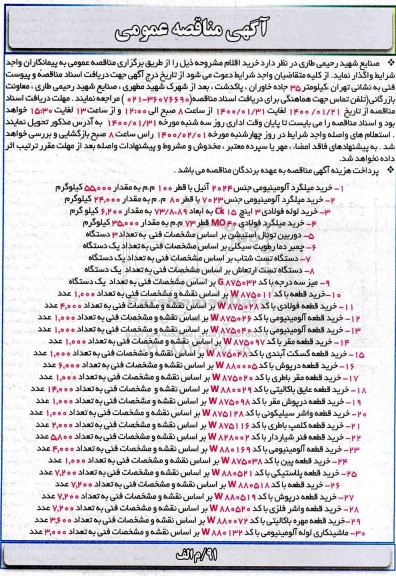 آگهی مناقصه عمومی
صنایع شهید رحیمی طاری در نظر دارد خرید اقلام مشروحه ذیل را از طریق برگزاری مناقصه عمومی به پیمانکاران واجد
شرایط واگذار نماید. از کلیه متقاضیان واجد شرایط دعوت می شود از تاریخ درج آگهی جهت دریافت اسناد مناقصه و پیوست
فنی به نشانی تهران ،کیلومتر ۳۵ جاده خاوران ، پاکدشت ، بعد از شهرک شهید مطهری ، صنایع شهید رحیمی طاری ، معاونت
بازرگانی(تلفن تماس جهت هماهنگی برای دریافت اسناد مناقصه(۳۶۰۷۶۶۹۰-۰۲۱ ) مراجعه نمایند . مهلت دریافت اسناد
مناقصه از تاریخ ۱۴۰۰/۰۱/۲۱ لغایت ۱۴۰۰/۰۱/۳۱ از ساعت ۸ صبح الی ۱۲:۰۰ و از ساعت ۱۳ لغایت ۱۵:۳۰ خواهد
بود و اسناد مناقصه را می بایست تا پایان وقت اداری روز سه شنبه مورخه ۱۴۰۰/۰۱/۳۱ به آدرس مذکور تحویل نمایند
. استعلام های واصله واجد شرایط در روز چهارشنبه مورخه ۱۴۰۰/۰۲/۰۱ راس ساعت ۸ صبح بازگشایی و بررسی خواهد
شد . به پیشنهادهای فاقد امضاء ، مهر یا سپرده معتبر ، مخدوش و مشروط و پیشنهادات واصله بعد از مهلت مقرر ترتیب اثر
داده نخواهد شد.
پرداخت هزینه آگهی مناقصه به عهده برندگان مناقصه می باشد .
۱- خرید میلگرد آلومینیومی جنس ۲۰۲۴ آنیل با قطر ۱۰۰ م.م به مقدار ۵۵,۰۰۰ کیلوگرم
۲- خرید میلگرد آلومینیومی جنس ۷۰۲۳ با قطر ۸۰ م.م به مقدار ۲۴,۰۰۰ کیلوگرم
۳- خرید لوله فولادی ۳ اینچ Ck 15 به ابعاد ۷۳*۸۰*۸۹ به مقدار ۶,۲۰۰ کیلو گرم
۴- خرید میلگرد فولادی MO 40 قطر ۷۳ م.م به مقدار ۳۵,۰۰۰ کیلوگرم
۵- دوربین توتال استیشن بر اساس مشخصات فنی به تعداد ۳ دستگاه
۶- چمبر دما رطوبت سیکلی بر اساس مشخصات فنی به تعداد یک دستگاه
۷- دستگاه تست شتاب بر اساس مشخصات فنی به تعداد یک دستگاه
۸- دستگاه تست ارتعاش بر اساس مشخصات فنی به تعداد یک دستگاه
۹- میز سه درجه با کد G ۸۷۵۰۳۲ بر اساس مشخصات فنی به تعداد یک دستگاه
۱۰- خرید قطعه با کد W ۸۷۵۰۱۱ بر اساس نقشه و مشخصات فنی به تعداد ۱,۰۰۰ عدد
۱۱- خرید قطعه فولادی با کد W ۸۷۵۰۲۸ بر اساس نقشه و مشخصات فنی به تعداد ۴,۰۰۰ عدد
۱۲- خرید قطعه آلومینیومی با کد W ۸۷۵۰۲۶ بر اساس نقشه و مشخصات فنی به تعداد ۱,۰۰۰ عدد
۱۳- خرید قطعه آلومینیومی با کد W ۸۷۵۰۴۰ بر اساس نقشه و مشخصات فنی به تعداد ۱,۰۰۰ عدد
۱۴- خرید قطعه مقر با کد W ۸۷۵۰۹۷ بر اساس نقشه و مشخصات فنی به تعداد ۱,۰۰۰ عدد
۱۵- خرید قطعه گسکت آببندی با کد W ۸۷۵۰۴۸ بر اساس نقشه و مشخصات فنی به تعداد ۱,۰۰۰ عدد
۱۶- خرید قطعه درپوش با کد W ۸۸۰۰۰۵ بر اساس نقشه و مشخصات فنی به تعداد ۶,۰۰۰ عدد
۱۷- خرید قطعه مقر باطری با کد W ۸۷۵۰۲۰ بر اساس نقشه و مشخصات فنی به تعداد ۱,۰۰۰ عدد
۱۸- خرید قطعه عایق باکالیتی با کد W ۸۸۰۰۲۹ بر اساس نقشه و مشخصات فنی به تعداد ۱۴,۰۰۰ عدد
۱۹- خرید قطعه درپوش مقر با کد W ۸۷۵۰۹۸ بر اساس نقشه و مشخصات فنی به تعداد ۱,۰۰۰ عدد
۲۰- خرید قطعه واشر سیلیکونی با کد W ۸۷۵۱۲۸ بر اساس نقشه و مشخصات فنی به تعداد ۱,۰۰۰ عدد
۲۱- خرید قطعه کلمپ باطری با کد W ۸۷۵۱۱۶ بر اساس نقشه و مشخصات فنی به تعداد ۲,۰۰۰ عدد
۲۲- خرید قطعه فنر شیاردار با کد W ۸۲۸۰۰۲ بر اساس نقشه و مشخصات فنی به تعداد ۵۸۰۰ عدد
۲۳- خرید قطعه آلومینیومی با کد W ۸۸۰۱۶۹ بر اساس نقشه و مشخصات فنی به تعداد ۴,۰۰۰ عدد
۲۴- خرید قطعه پین با کد W ۸۷۵۰۳۸ بر اساس نقشه و مشخصات فنی به تعداد ۱,۰۰۰ عدد
۲۵- خرید قطعه پلاستیکی با کد W ۸۸۰۵۲۱ بر اساس نقشه و مشخصات فنی به تعداد ۷,۲۰۰ عدد
۲۶- خرید قطعه با کد W ۸۸۰۵۱۸ بر اساس نقشه و مشخصات فنی به تعداد ۷,۲۰۰ عدد
۲۷- خرید قطعه درپوش با کد W ۸۸۰۵۱۹ بر اساس نقشه و مشخصات فنی به تعداد ۷,۲۰۰ عدد
۲۸- خرید قطعه واشر فلزی با کد W ۸۸۰۵۲۰ بر اساس نقشه و مشخصات فنی به تعداد ۷,۲۰۰ عدد
۲۹- خرید قطعه مهره باکالیتی با کد W ۸۸۰۰۷۲ بر اساس نقشه و مشخصات فنی به تعداد ۳,۶۰۰ عدد
۳۰- ماشینکاری لوله آلومینیومی با کد W ۸۸۰۱۳۲ بر اساس نقشه و مشخصات فنی به تعداد ۳,۰۰۰ عدد
۹۱/م الف